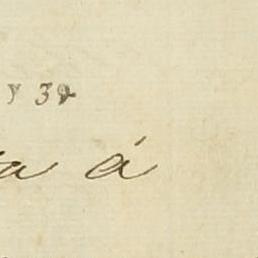 y 39
a á